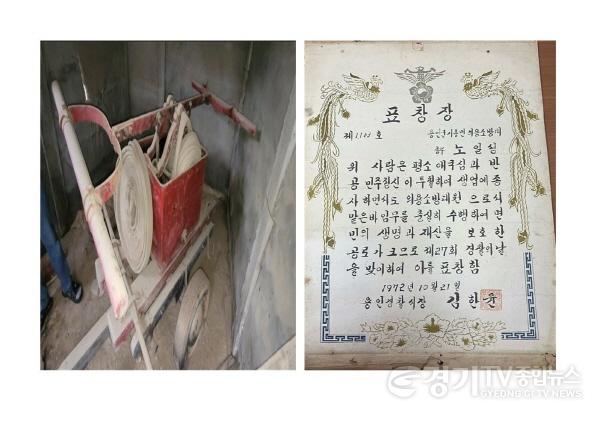 표창장
제1103호
용인군 의용소방대
노일심
위 사람은 평소 애국심과 반
공 민주정신이 투철하여 생업에 종
사하면서도 의용소방대원으로서
맡은바 임무를 충실히 수행하여 면
민의 생명과 재산을 보호한
공로가 크므로 제27회 경찰의날
을 맞이하여 이를 표창함
1972년 10월 21일
용인경찰서장 김한윤
경기TV종합뉴스
GYEONG GI TV NEWS